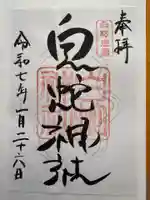 奉拝
白蛇神社
令和七年一月二十六日